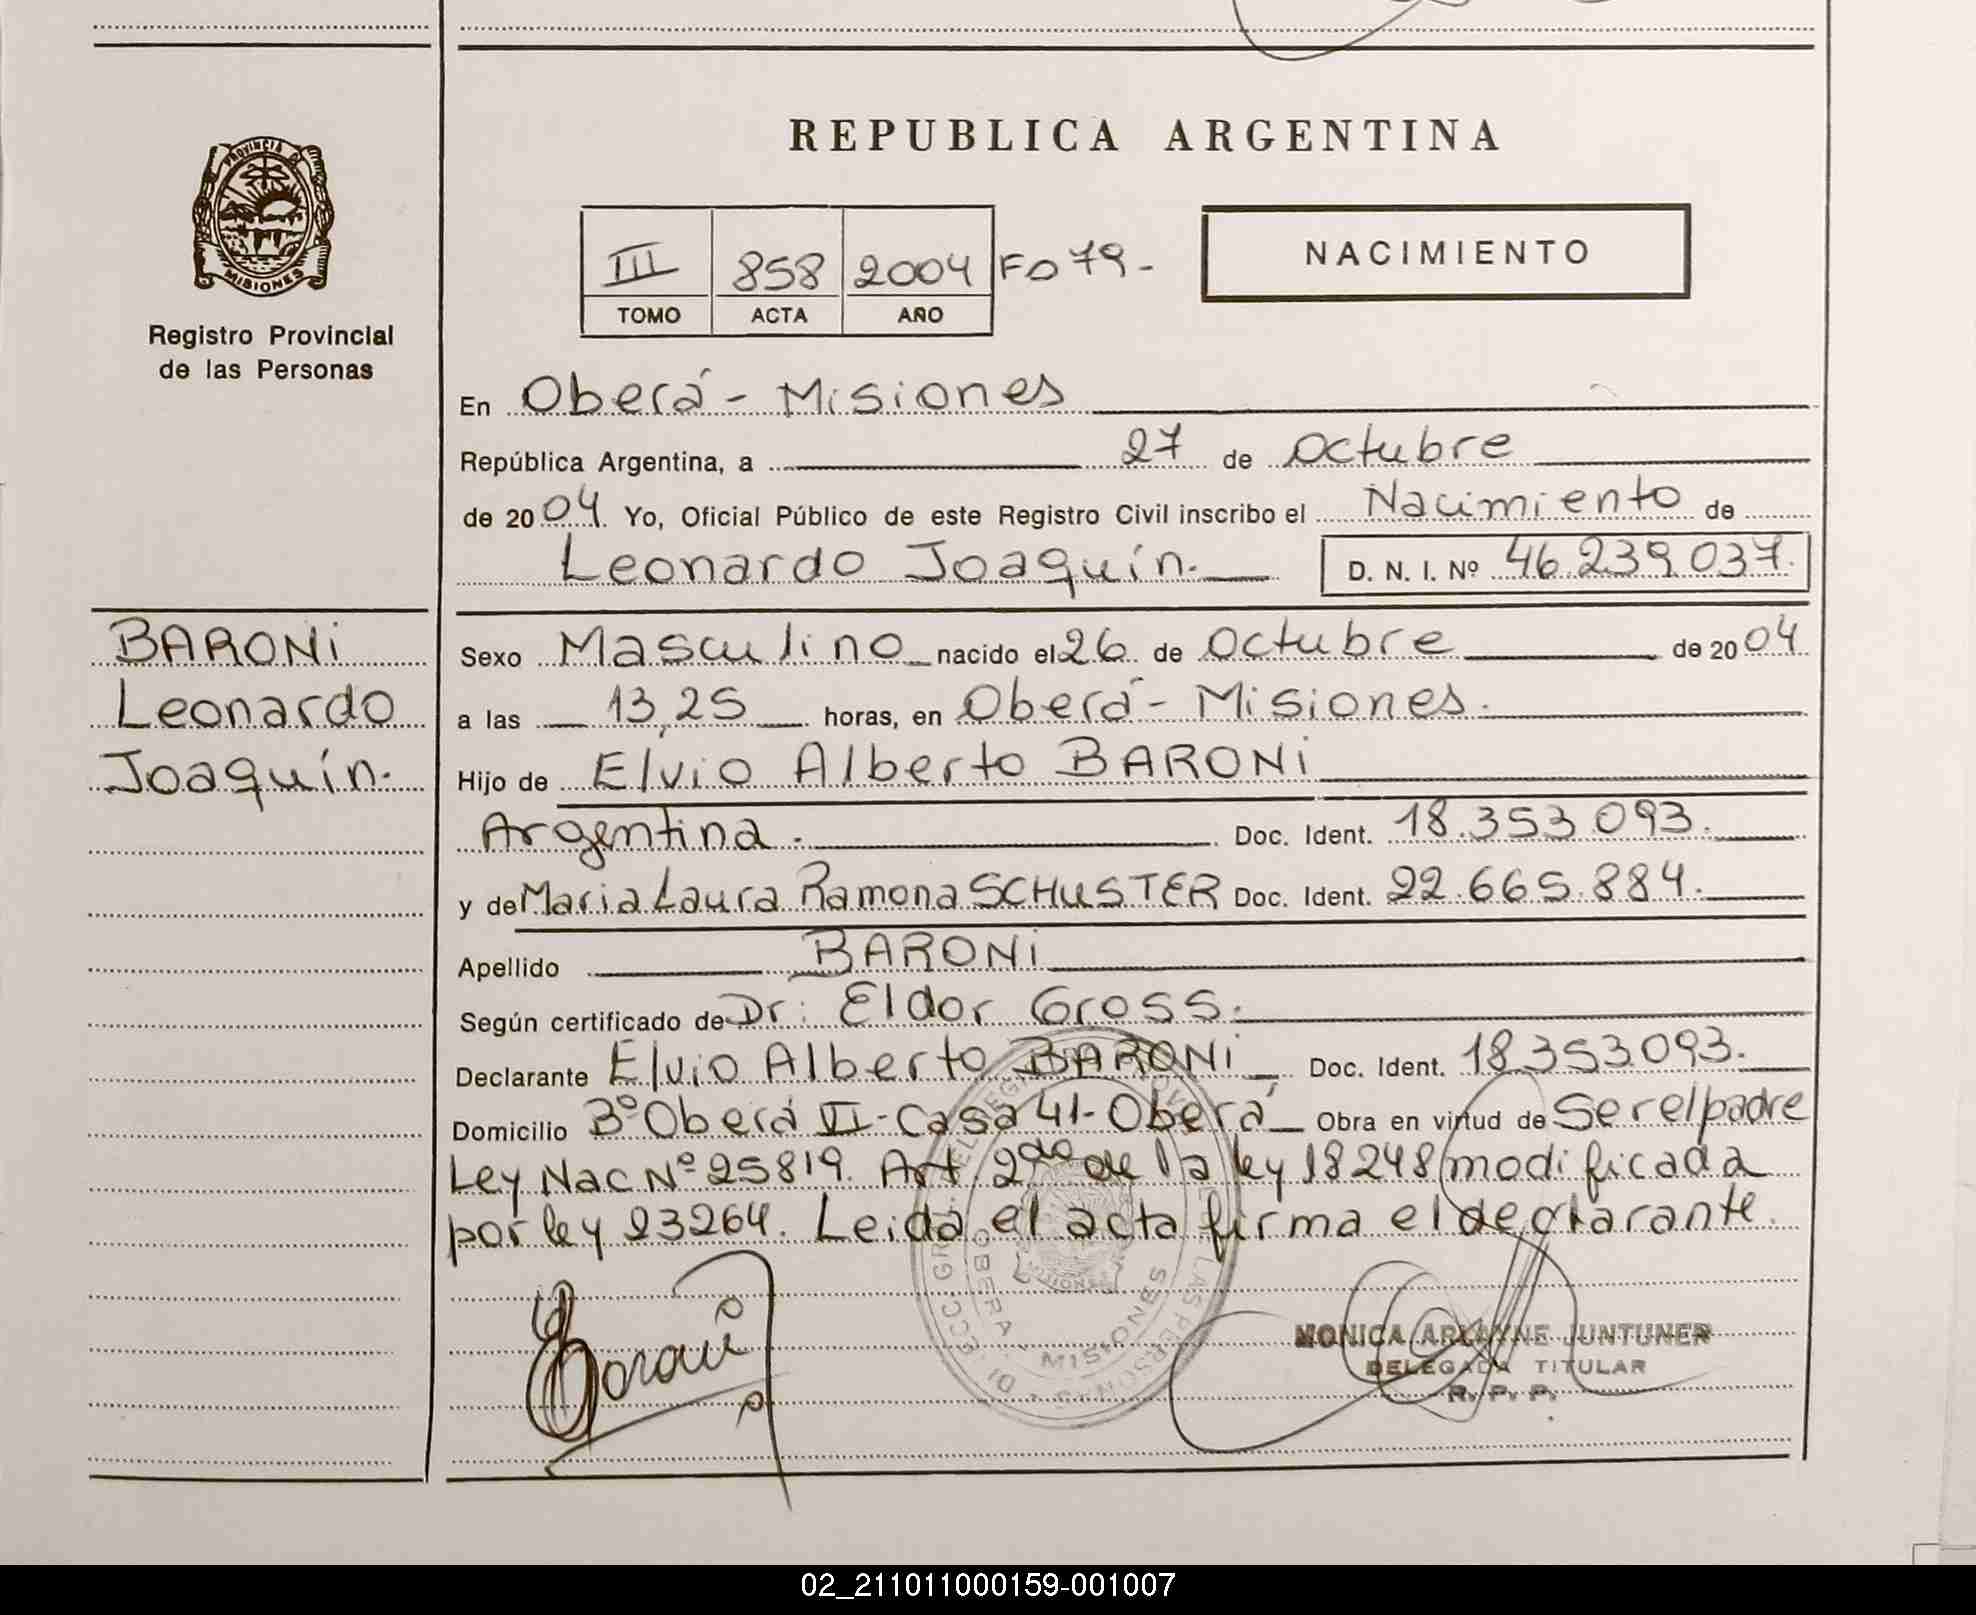 REPUBLICA ARGENTINA
PROVINCIA D
MISIONES
Registro Provincial
de las Personas
III 858 2004 Fo 79-
TOMO ACTA AÑO
NACIMIENTO
En Oberá - Misiones
República Argentina, a 27 de Octubre
de 2004. Yo, Oficial Público de este Registro Civil inscribo el Nacimiento de
Leonardo Joaquín. D. N. I. Nº 46.239.037.
BARONi
Leonardo
Joaquín.
Sexo Masculino nacido el 26 de Octubre de 2004
a las 13,25 horas, en Oberá - Misiones.
Hijo de Elvio Alberto BARONi
Argentina. Doc. Ident. 18.353.093.
y de Maria Laura Ramona SCHUSTER Doc. Ident. 22.665.884.
Apellido BARONi
Según certificado de Dr: Eldor Gross.
Declarante Elvio Alberto BARONi Doc. Ident. 18.353.093.
Domicilio Bº Oberá VI - Casa 41 - Oberá Obra en virtud de Ser el padre
Ley Nac Nº 25819. Art. 2do de la ley 18248 modificada
por ley 23264. Leida el acta firma el declarante.
Baroni
OBERA MISIONES
MONICA ARLAYNE JUNTUNER
DELEGADA TITULAR
R. P. P.
02_211011000159-001007